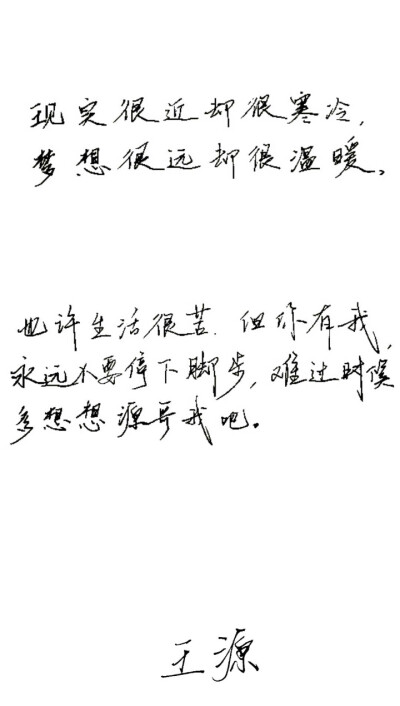 现实很近却很寒冷,
梦想很远却很温暖。
也许生活很苦.但你有我,
永远不要停下脚步,难过时候
多想想源哥我吧。
王源